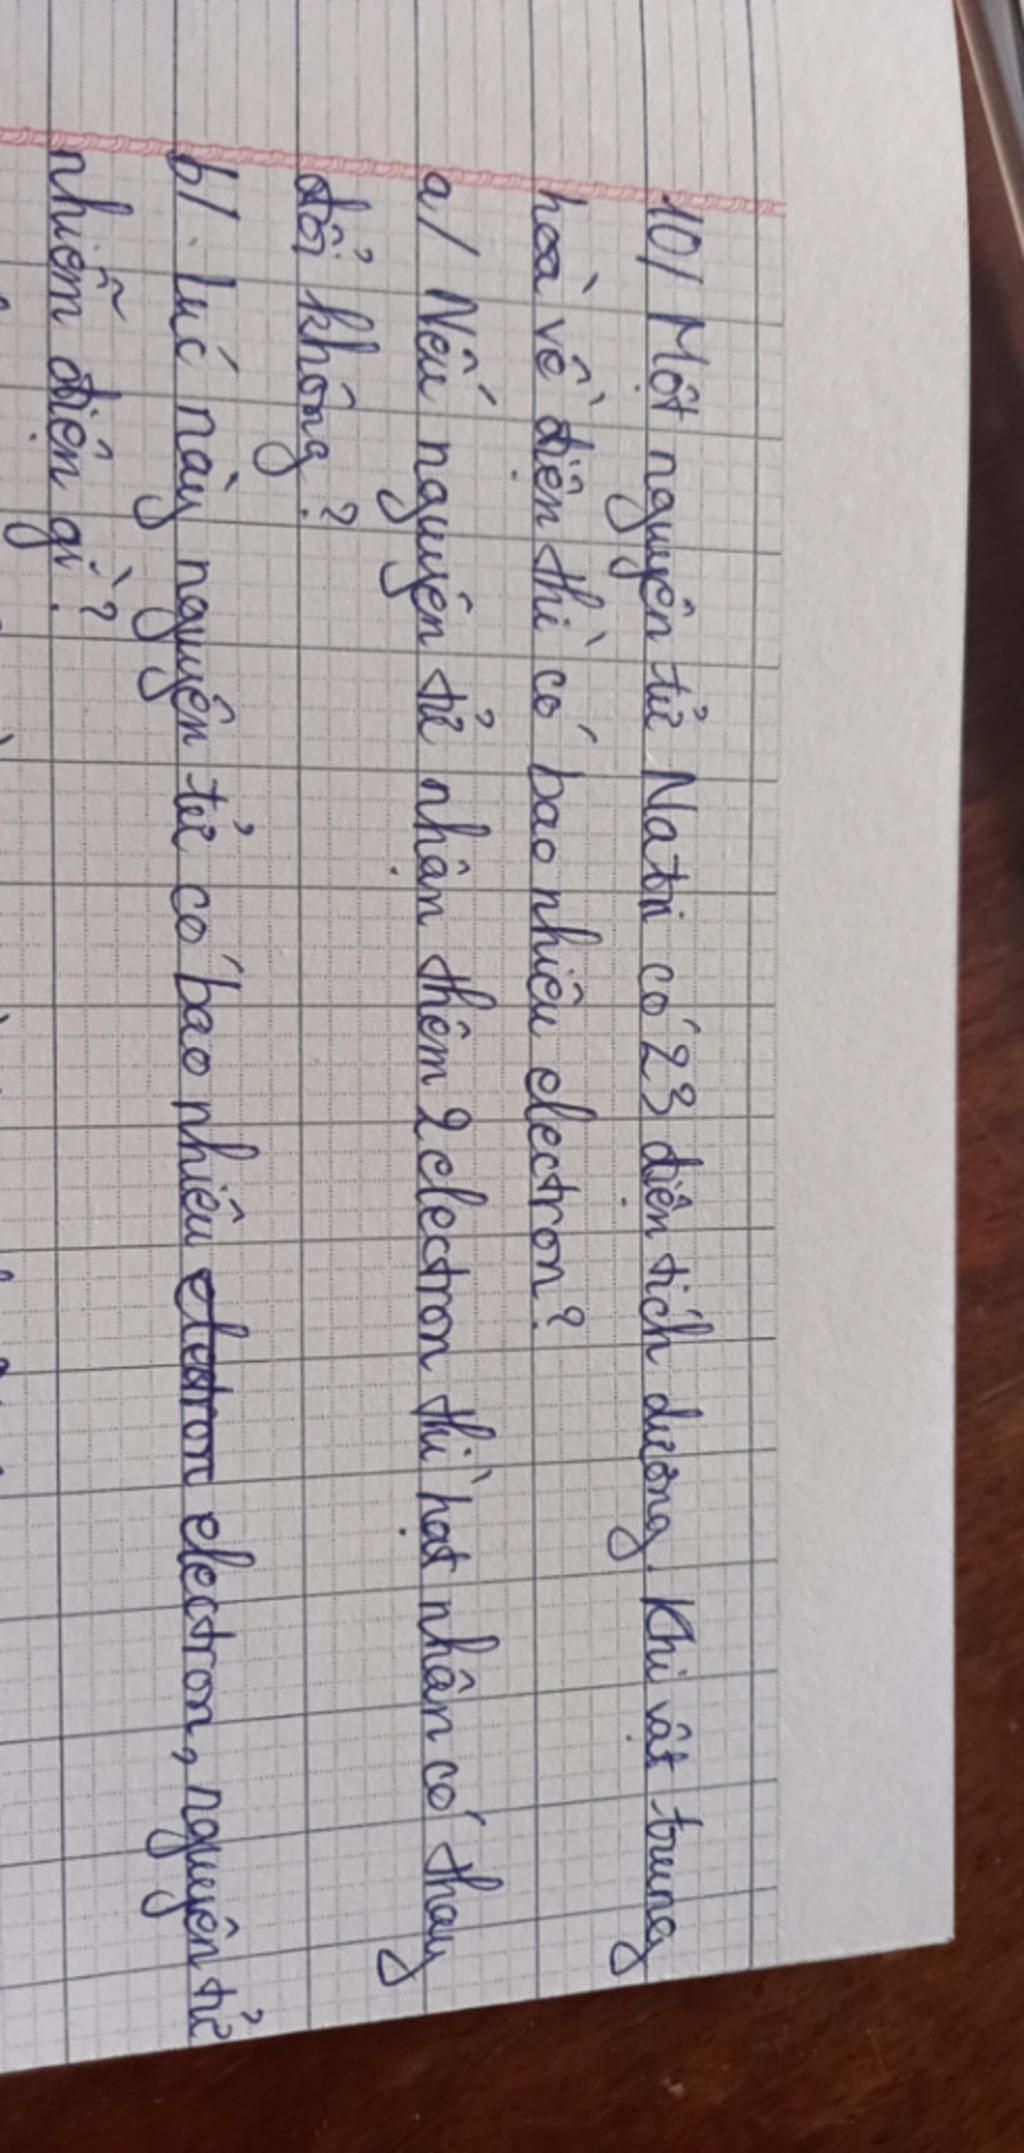 10/ Một nguyên tử Natri có 23 điện tích dương. Khi vật trung
hoà về điện thì có bao nhiêu electron?
a/ Nếu nguyên tử nhận thêm 2 electron thì hạt nhân có thay
đổi không?
b/. lúc này nguyên tử có bao nhiêu electron electron, nguyên tử
nhiễm điện gì?